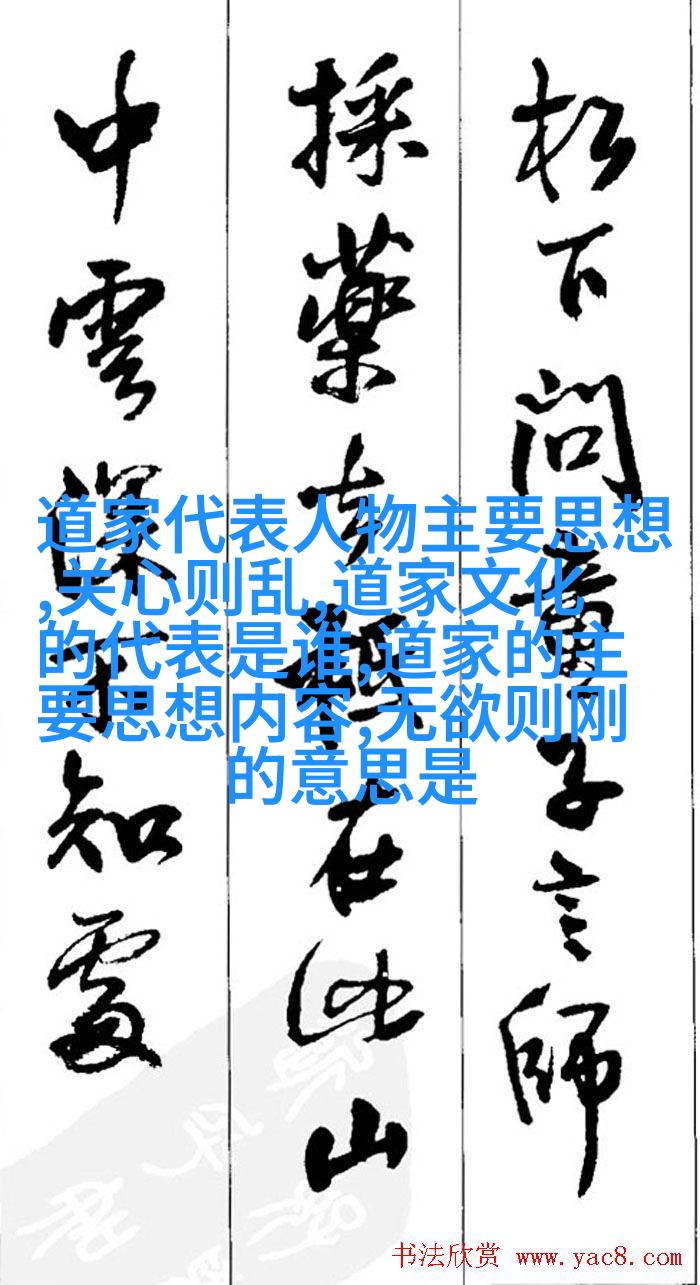 松下问童子言師
採藥去祇在此山
中雲深不知處
道家代表人物主要思想
,关心则乱,道家文化
的代表是谁,道家的主
要思想内容,无欲则刚
的意思是
书法欣赏 www.yac8.com